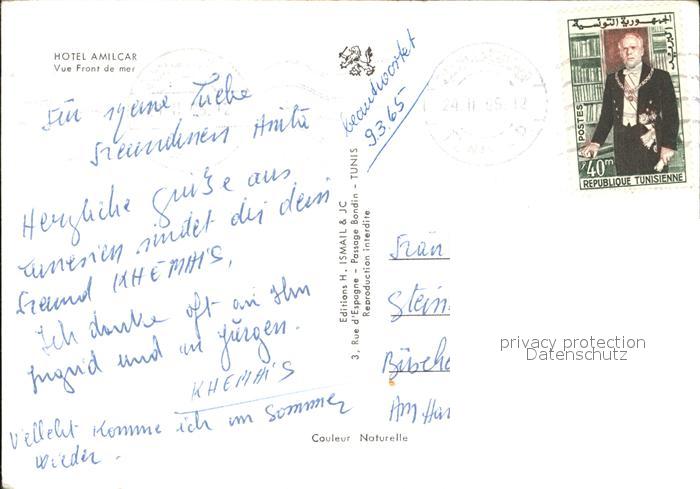 HOTEL AMILCAR
Vue Front de mer
Für meine Liebe
Freundinen Anita
Herzliche Grüße aus
Tunesien sindet dir dein
Freund KHEMAIS,
Ich danke oft an Ihn
Ingrid und an Jürgen.
KHEMAIS
Vellecht komme ich im Sommer
wieder.
beantwortet
9.3.65
Editions H. ISMAIL & JC
3, Rue d'Espagne - Passage Bondin - TUNIS
Reproduction interdite
Couleur Naturelle
24 II 65 12
الجمهورية التونسية
البريد
POSTES
40m
REPUBLIQUE TUNISIENNE
Stein
Am
privacy protection
Datenschutz